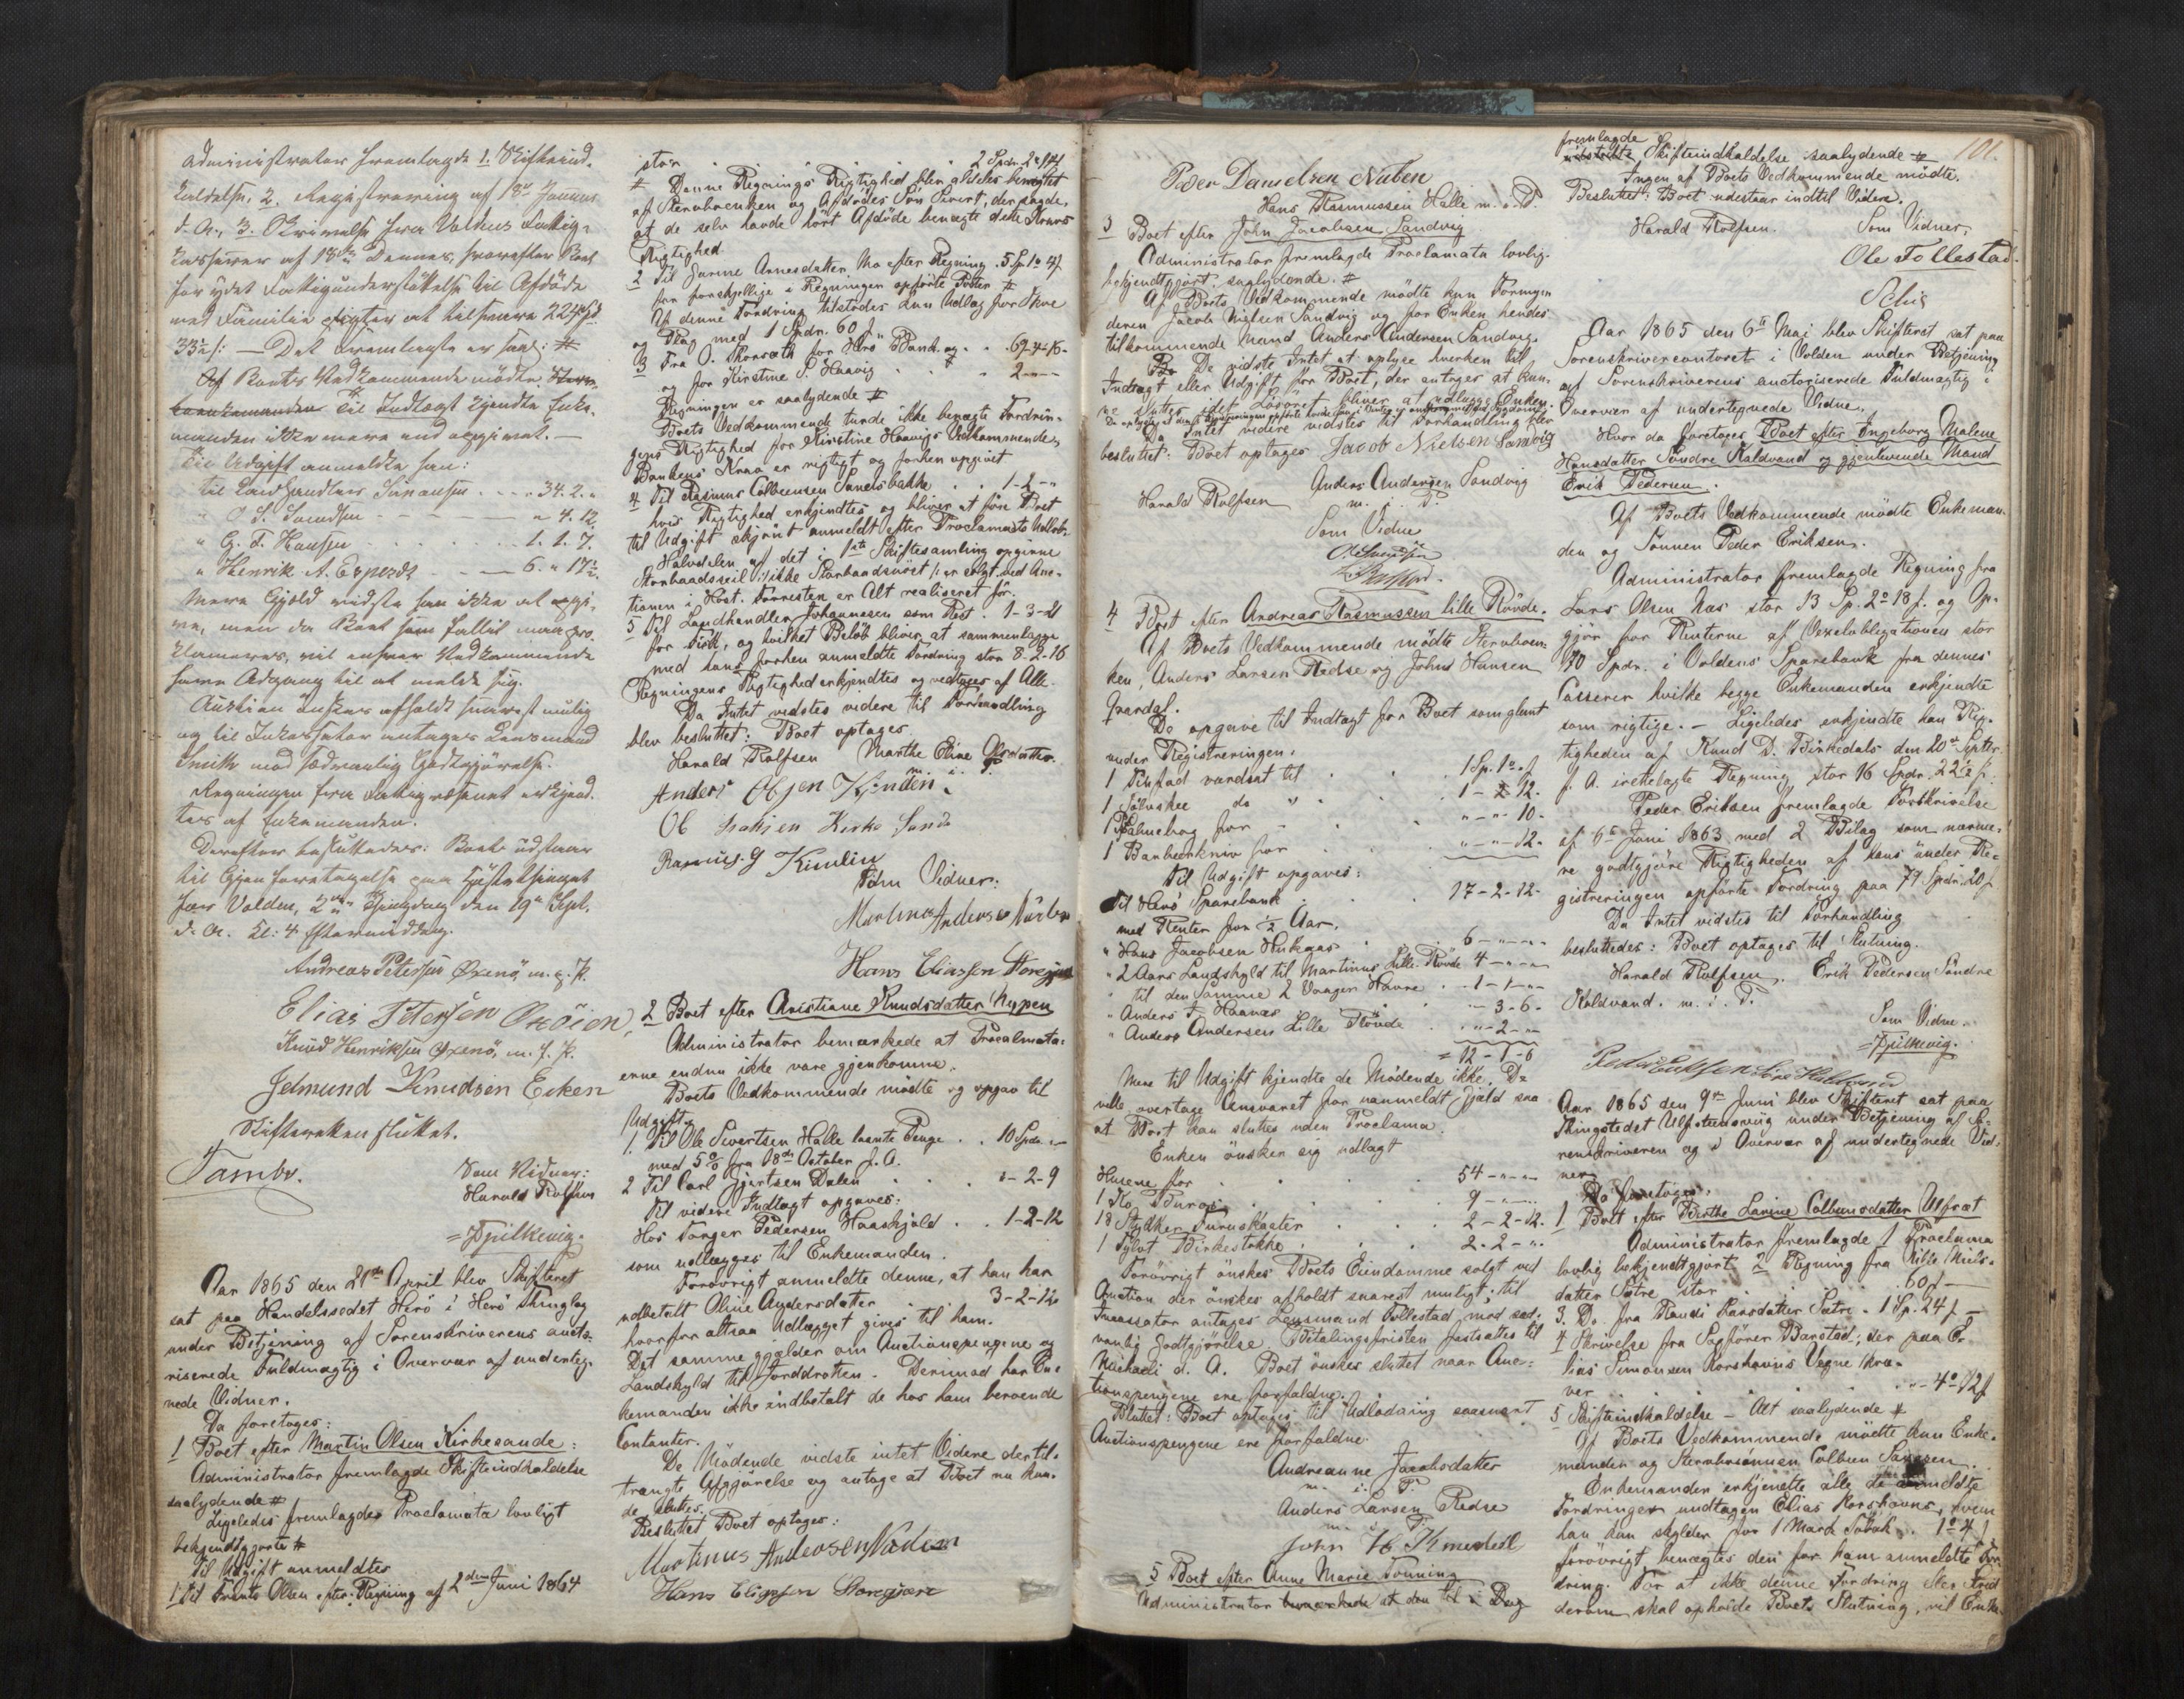 Administrator fremlagde 1. Skifteind-
kaldelse. 2. Registrering af 18de Januar
d. A., 3. Skrivelse fra Voldens Fattig-
kasserer af 18de Dennes, hvorefter Boet
for ydet Fattigunderstøttelse til Afdøde
med Familie pligter at tilsvare 224 Spd
33½ s: — Det Fremlagte er saal: #
Af Boets Vedkommende mødte
Til Indtægt kjendte Enke-
manden ikke mere end opgivet. —
Til Udgift anmeldte han:
til Landhandler Simonsen . . „ 34. 2. „
" O S. Svendsen - - „ 4. 12.
" G. F. Hansen . . . . 1. 1. 7.
" Henrik A. Esperds - - — 6. „ 17½
Mere Gjæld vidste han ikke at opgi-
ve, men da Boet som fallit maa pro-
klameres, vil enhver Vedkommende
have Adgang til at melde sig.
Auktion ønskes afholdt snarest mulig
og til Inkassator antages Lensmand
Smith mod sædvanlig Godtgjørelse.
Regningen fra Fattigvæsenet erkjend-
tes af Enkemanden.
Derefter besluttedes: Boet udstaar
til Gjenforetagelse paa Høstethinget
for Volden, 2den Thingdag den 19de Sept.
d. A. Kl: 4 Eftermiddag.
Andreas Petersen Oxenö, m. i. P.
Elias Petersen Oxöien,
Knud Henriksen Oxenö, m. i. P.
Jetmund Knudsen Ecken
Skifteretten sluttet.
Tambs.
Som Vidner:
Harald Rolfsen
= Spilkevig.
Aar 1865 den 21de April blev Skifteret
sat paa Handelsstedet Herö i Herö Thinglag
under Betjening af Sorenskriverens aucto-
riserede Fuldmægtig i Overvær af underteg-
nede Vidner.
Da foretoges:
1 Boet efter Martin Olsen Kirkesande:
Administrator fremlagde Skifteindkaldelse
saalydende #
Ligeledes fremlagdes Proclamata lovligt
bekjendtgjorte #
Til Udgift anmeldtes
1 Til Frants Olsen efter Regning af 2den Juni 1864
stor . . . 2 Spdr. 2 # 14
# Denne Regnings Rigtighed blev aldeles benegtet
af Stervboenken og Afdødes Søn Sivert, der sagde,
at de selv havde hørt Afdøde benægte dette Kravs
Rigtighed
2 Til Jurine Arnesdatter Mo efter Regning . 5 Sp 1 o 4 s
for forskjellige i Regningen opførte Poster #
Af denne Fordring tilstodes kun Udlæg for Skoe
og Plag med 1 Spdr. 60 s.
3 Fra O. Thoresæth for Herö Bank og . . 67-4-16-
og for Kirstine S. Haavig . . . 2 - - -
Regningen er saalydende #
Boets Vedkommende turde ikke benægte Fordrin-
gens Rigtighed for Kirstine Haavigs Vedkommende,
Bankens Krav er rigtigt og forhen opgivet
4 Til Rasmus Colbeensen Sanesbakke . . 1-2-„
hvis Rigtighed erkjendtes og bliver at føre Boet
til Udgift skjønt anmeldt efter Proclamaets Udløb.
Halvdelen af det i 1ste Skiftesamling opgivne
Storbaadsseil /: ikke Storbaadsnöst :/ er solgt ved Auc-
tionen i Høst. Forresten er Alt realiseret før.
5 Til Landhandler Johannesen som Rest . 1-3-21
for Fisk, og hvilket Beløb bliver at sammenlægge
med hans forhen anmeldte Fordring stor 8-2-16
Regningens Rigtighed erkjendtes og vedtoges af Alle.
Da Intet vidstes videre til Forhandling
blev besluttet: Boet optages
Harald Rolfsen Marthe Eline Olsdatter.
m. i. P.
Anders Olsen Kinden.
Ol Isaksen Kirke Sande
Rasmus. G Kimlin
Som Vidner:
Martinus Anderson
Hans Eliassen Storegjære
2 Boet efter Christiane Knudsdatter Nypen
Administrator bemærkede at Proclamata-
erne endnu ikke vare gjenkomne.
Boets Vedkommende mødte og opgav til
Udgift.
1. Til Ole Sivertsen Halle laante Penge . . 10 Spdr. „-
med 5 % fra 18de October f. A.
2 Til Carl Gjertsen Dalen . . . „-2-9
Til videre Indtægt opgaves:
Hos Torger Pedersen Haaskjold . . 1-2-12
som udlægges til Enkemanden.
Forøvrigt anmeldte denne, at han har
udbetalt Oline Andersdatter . . 3-2-12
hvorfor altsaa Udlægget gives til ham.
Det samme gjælder om Auctionspengene og
Landskyld til Jorddrotten. Derimod har En-
kemanden ikke indbetalt de hos ham beroende
Contanter.
De Mødende vidste intet Videre dertil
trængte Afgjørelse og antoge at Boet nu kun-
de sluttes.
Besluttet Boet optages:
Martinus Andersen
Hans Eliassen Storegjære
101.
Peder Danielsen Nuben
Hans Rasmussen Halle m. i. P.
3 Boet efter John Jacobsen Sandvig
Administrator fremlagde Proclamata lovlig-
bekjendtgjort saalydende. #
Af Boets Vedkommende mødte kun Formyn-
deren Jacob Nielsen Sandvig og for Enken hendes
tilkommende Mand Anders Andersen Sandvig.
De vidste Intet at oplyse hverken til
Indtægt eller Udgift for Boet, der antages at kun-
ne sluttes idet Løsøret bliver at udlægge Enken.
Da Intet videre vidstes til Forhandling blev
besluttet: Boet optages Jacob Nielsen Sandvig
Anders Andersen Sandvig
Harald Rolfsen m. i. P.
Som Vidne
4 Boet efter Andreas Rasmussen lille Rövde.
Af Boets Vedkommende mødte Stervboen-
ken, Anders Larsen Redse og Johns Hansen
De opgave til Indtægt for Boet somglemt
under Registreringen.
1 Tinfad vurdsat til . . . 1 Sp. 1 o. s.
1 Sølvskee do „ . . . 1 - 2 12.
1 Psalmebog for - . . . „ - „ - 10-
1 Barbeerkniv for . . . „ - „ - 12-
Til Udgift opgaves:
Til Herö Sparebank . . . 17-2-12-
med Renter for ½ Aar.
" Hans Jacobsen . . 6 - „ - „
" 2 Aars Landskyld til Martinus Lille Rövde 4 - „ - „
" til den Samme 2 Vaager Havre . . 1-1-„
" Anders J. Haanæs . . . „-3-6-
" Anders Andersen Lille Rövde . „-2-„
= 12-1-6
Mere til Udgift kjendte de Mødende ikke. De
ville overtage Ansvaret for uanmeldt Gjæld saa
at Boet kan sluttes uden Proclama.
Enken ønsker sig udlagt
Husene for . . . . 54 - „ - „
1 Ko, Buraas . . . . 9 - „ - „
18 Stykker Furuskaater . . . 2-2-12.
1 Tylvt Birkestokke . . . 2-2-„
Forøvrigt ønskes Boets Eiendomme solgt ved
Auction der ønskes afholdt snarest muligt: til
Incassator antages Lensmand Follestad mod sæd-
vanlig Godtgjørelse. Betalingsfristen fastsattes til
Michaeli d. A. Boet ønskes sluttet naar Auc-
tionspengene ere forfaldne.
Sluttet: Boet optages til Udlodning saasnart
Auctionspengene ere forfaldne.
Andreanne Jacobsdatter
m. i. P.
Anders Larsen Redse
m. i. P.
John H.
5 Boet efter Anne Marie Tonning
Administrator bemærkede at den til i Dag
fremlagde
udstedte Skifteindkaldelse saalydende #
Ingen af Boets Vedkommende mødte.
Besluttet: Boet udestaar indtil Videre.
Harald Rolfsen. Som Vidner:
Ole Follestad.
Schie
Aar 1865 den 6te Mai blev Skifteret sat paa
Sorenskrivercontoret i Volden under Betjening
af Sorenskriverens auctoriserede Fuldmægtig i
Overvær af undertegnede Vidne.
Hvor da foretoges Boet efter Ingeborg Malene
Hansdatter Søndre Kaldvand og gjenlevende Mand
Erik Pedersen.
Af Boets Vedkommende mødte Enkeman-
den og Sønnen Peder Eriksen.
Administrator fremlagde Regning fra
Lars Olsen Næs stor 13 Sp. 2 o 18 s. og Op-
gjør for Renterne af Vexelobligationen stor
70 Spdr. i Voldens Sparebank fra dennes
Casserer hvilke begge Enkemanden erkjendte
som rigtige. - Ligeledes erkjendte han Rig-
tigheden af Knud D. Birkedals den 20de Septbr.
f. A. irettelagte Regning, stor 16 Spdr. 22½ s.
Peder Eriksen fremlagde Fortskrivelse
af 6te Juni 1863 med 2 Bilag som nærme-
re godtgjøre Rigtigheden af hans under Re-
gistreringen opførte Fordring paa 77 Spdr. 20 s
Da Intet vidstes til Forhandling
besluttedes: Boet optages til Slutning.
Harald Rolfsen. Erik Pedersen Søndre
Kaldvand. m. i. P.
Som Vidne.
= Spilkevig.
Peder Eriksen
Aar 1865 den 9de Juni blev Skifteret sat paa
Thingstedet Ulfsteensvig under Betjening af So-
renskriveren og i Overvær af undertegnede Vid-
ner.
Da foretoges:
1 Boet efter Birthe Lavine Colbensdatter Ulfsæt
Administrator fremlagde 1 Proclama
lovlig bekjendtgjort 2 Regning fra Nille Niels-
datter Sætre stor . . . 60 s —
3. Do. fra Randi Hansdatter Sætre. 1 Sp. 24 s —
4 Skrivelse fra Sagfører Barstad, der paa E-
lias Simonsen Korshavns Vegne kræ-
ver . . . . „ - 4 o 12 s
5 Skifteindkaldelse - Alt saalydende #
Af Boets Vedkommende mødte kun Enke-
manden og Stervbosønnen Colbeen
Enkemanden erkjendte alle de anmeldte
Fordringer undtagen Elias Korshavns, hvem
han kun skylder for 1 Mark Tobak . 1 o 4 s
forøvrigt benægtes den for ham anmeldte For-
dring. For at ikke denne Fordring eller Strid
derom skal opholde Boets Slutning, vil Enke-